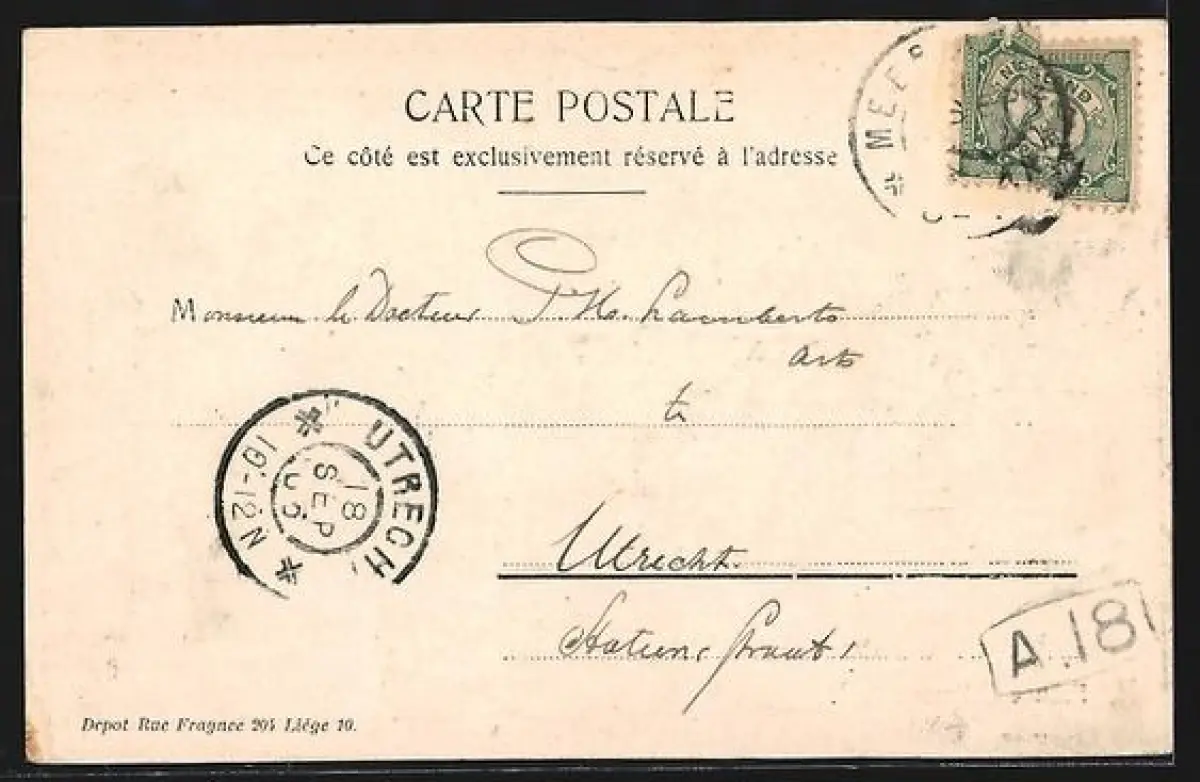 CARTE POSTALE
Ce côté est exclusivement réservé à l'adresse
MEE
Monsieur le Docteur Lamberts
arts
te
UTRECH
18
SEP
10-12 N
Utrecht.
Statiens straat
A.18
Depot Rue Fragnee 204 Liége 10.